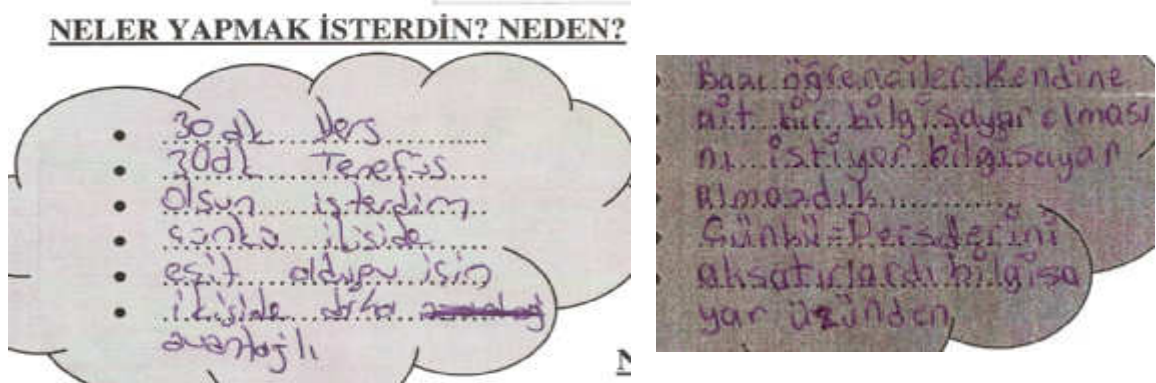 NELER YAPMAK İSTERDİN? NEDEN?
30 dk Ders
30dk Tenefüs
olsun isterdim
çünkü ikiside
eşit olduğu için
ikiside daha
avantajlı
Bazı öğrenciler kendine
ait bir bilgisayar olması
nı istiyor bilgisayar
almazdık
Çünkü = Derslerini
aksatırlardı bilgisa
yar üzünden
N